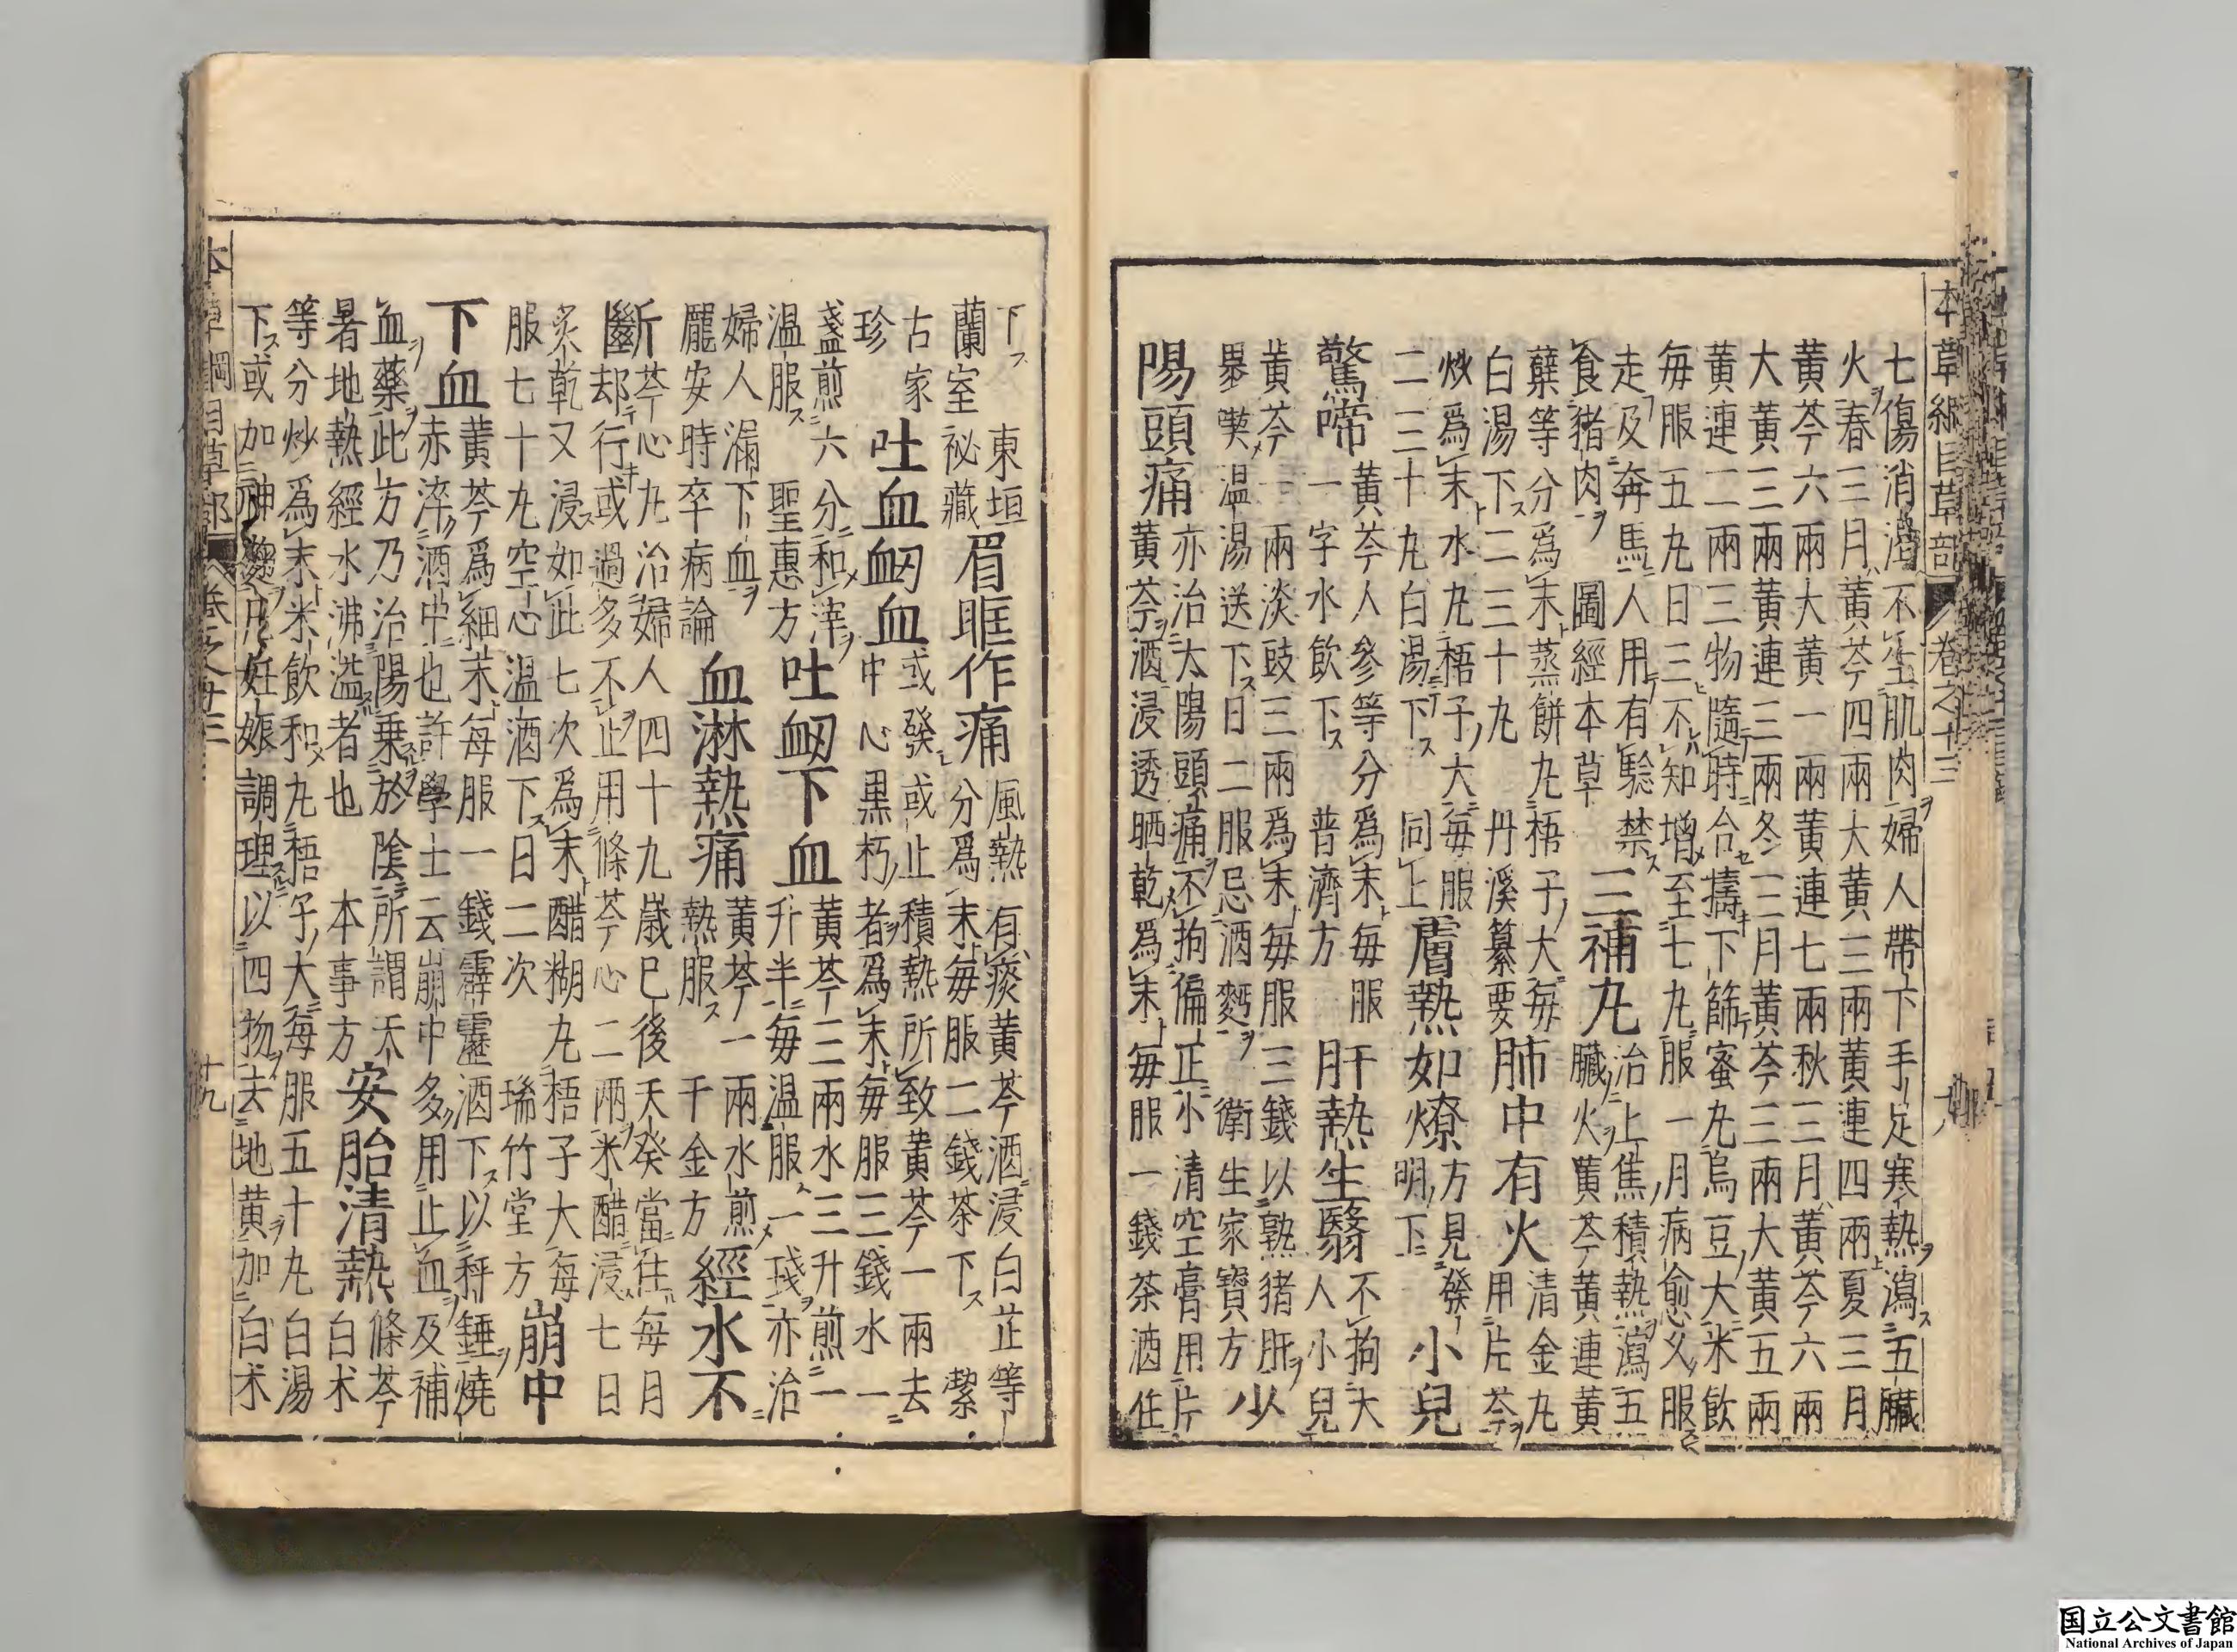 本草綱目草部 卷之十三
七傷消渴不生肌肉婦人帶下手足寒熱瀉五臟
火春三月黃芩四兩大黃三兩黃連四兩夏三月
黃芩六兩大黃一兩黃連七兩秋三月黃芩六兩
大黃三兩黃連三兩冬三月黃芩三兩大黃五兩
黃連二兩三物隨時合擣下篩蜜丸烏豆大米飲
每服五丸日三不知增至七丸服一月病愈久服
走及奔馬人用有驗禁
食豬肉 圖經本草
三補丸
治上焦積熱瀉五
臟火黃芩黃連黃
蘗等分爲末蒸餅丸梧子大每
白湯下二三十丸 丹溪纂要
肺中有火
清金丸
用片芩
炒爲末水丸梧子大每服
二三十丸白湯下 同上
膚熱如燎
方見發
明下
小兒
驚啼
黃芩人參等分爲末每服
一字水飲下 普濟方
肝熱生翳
不拘大
人小兒
黃芩一兩淡豉三兩爲末每服三錢以熟猪肝
裹喫温湯送下日二服忌酒麪 衛生家寶方
少
陽頭痛
亦治太陽頭痛不拘偏正小清空膏用片
黃芩酒浸透晒乾爲末每服一錢茶酒任
下 東垣
蘭室祕藏
眉眶作痛
風熱有痰黃芩酒浸白芷等
分爲末每服二錢茶下 潔
古家
珍
吐血衄血
或發或止積熱所致黃芩一兩去
中心黒朽者爲末每服三錢水一
盞煎六分和滓
温服 聖惠方
吐衄下血
黃芩三兩水三升煎一
升半每温服一琖亦治
婦人漏下血
龐安時卒病論
血淋熱痛
黃芩一兩水煎
熱服 千金方
經水不
斷
芩心丸治婦人四十九歲巳後天癸當住每月
却行或過多不止用條芩心二兩米醋浸七日
炙乾又浸如此七次爲末醋糊丸梧子大每
服七十丸空心温酒下日二次 瑞竹堂方
崩中
下血
黃芩爲細末每服一錢霹靂酒下以秤錘燒
赤淬酒中也許學士云崩中多用止血及補
血藥此方乃治陽乗於陰所謂天
暑地熱經水沸溢者也 本事方
安胎清熱
條芩
白朮
等分炒爲末米飲和丸梧子大每服五十丸白湯
下或加神麴凡妊娠調理以四物去地黃加白朮
本草綱目草部 卷之十三 十九
国立公文書館
National Archives of Japan